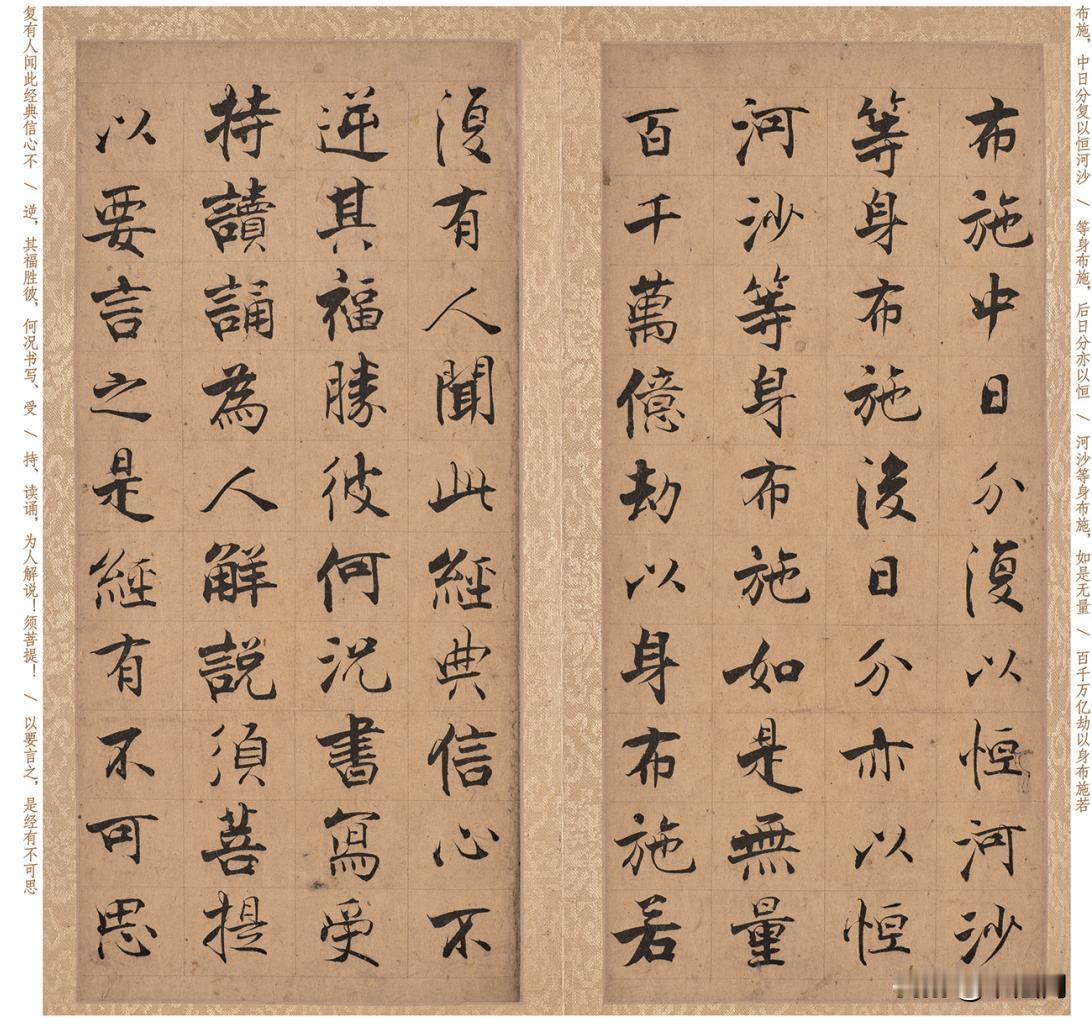 布施，中日分复以恒河沙 / 等身布施，后日分亦以恒 / 河沙等身布施，如是无量 / 百千万亿劫以身布施若
布施中日分復以恒河沙
等身布施後日分亦以恒
河沙等身布施如是無量
百千萬億劫以身布施若
復有人聞此經典信心不
逆其福勝彼何況書寫受
持讀誦為人解説須菩提
以要言之是經有不可思
复有人闻此经典信心不 / 逆，其福胜彼，何况书写、受 / 持、读诵，为人解说！须菩提！ / 以要言之，是经有不可思